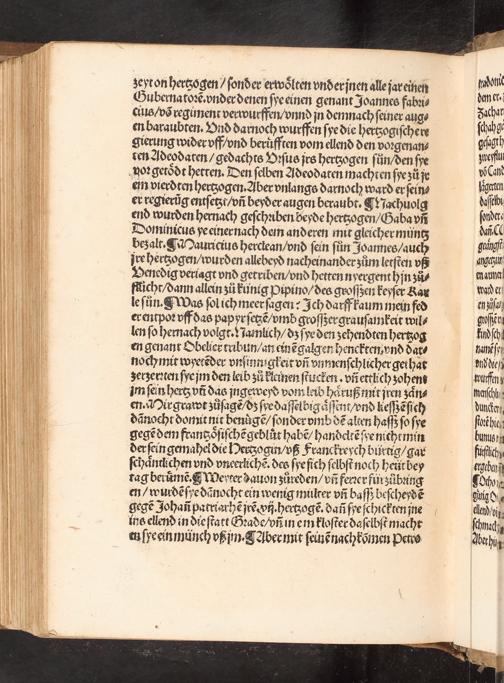 zeyt on hertzogen / sonder erwölten vnder jnen alle jar einen
Gubernatorē. vnder denen sye einen genant Joannes fabri-
cius / vō regiment verwurffen / vnnd jn demnach seiner aug-
en baraubten. Vnd darnoch wurffen sye die hertzogische re
gierung wider vff / vnd berüfften vom ellend den vorgenan-
ten Adeodaten / gedachts Vrsus jrs hertzogen sün / den sye
vor getödt hetten. Den selben Adeodaten machten sye zů je
em vierdten hertzogen. Aber vnlangs darnoch ward er sein-
er regierūg entsetzt / vñ beyder augen beraubt. ¶ Nachuolg
end wurden hernach geschriben beyde hertzogen / Gaba vñ
Dominicus ye einer nach dem anderen mit gleicher müntz
bezalt. ¶ Mauricius herclean / vnd sein sün Joannes / auch
jre hertzogen / wurden allebeyd nacheinander zům letsten vß
Venedig veriagt vnd getriben / vnd hetten nyergent hjn zů-
flücht / dann allein zů künig Pipino / des grosszen keyser Kar
le sün. ¶ Was sol ich meer sagen? Ich darff kaum mein fed
er entpor vff das papyr setzē / vmb grossz er grausamkeit wil-
len so hernach volgt. Namlich / dz sye den zehendten hertzog
en genant Obelier tribun / an einē galgen henckten / vnd dar-
noch mit wyetēder vnsinnigkeit vñ vnmenschlicher gei hat
zerzerten sye jm den leib zů kleinen stucken. vñ ettlich zohent
jm sein hertz vñ das jngeweyd vom leib härusz mit jren zän-
en. Mir grawt zůsagē / dz sye dasselbig ässent / vnd liessz sich
dānocht domit nit benügē / sonder vmb dē alten hassz so sye
gegē dem frantzösischē geblüt habē / handeltē sye nicht min
der sein gemahel die Hertzogin / vß Franckreych bürtig / gar
schäntlichen vnd vneerlichē. des sye sich selbst noch heüt bey
tag berümē. ¶ Weyter dauon zůreden / vñ ferrer für zůbring
en / wurdē sye dānocht ein wenig milter vñ bassz bescheydē
gegē Johañ patriarhē jrē .xij. hertzogē. dañ sye schickten jne
ins ellend in die statt Grade / vñ in em kloster daselbst macht
en sye ein münch vß jm. ¶ Aber mit seinē nachkōmen Petro